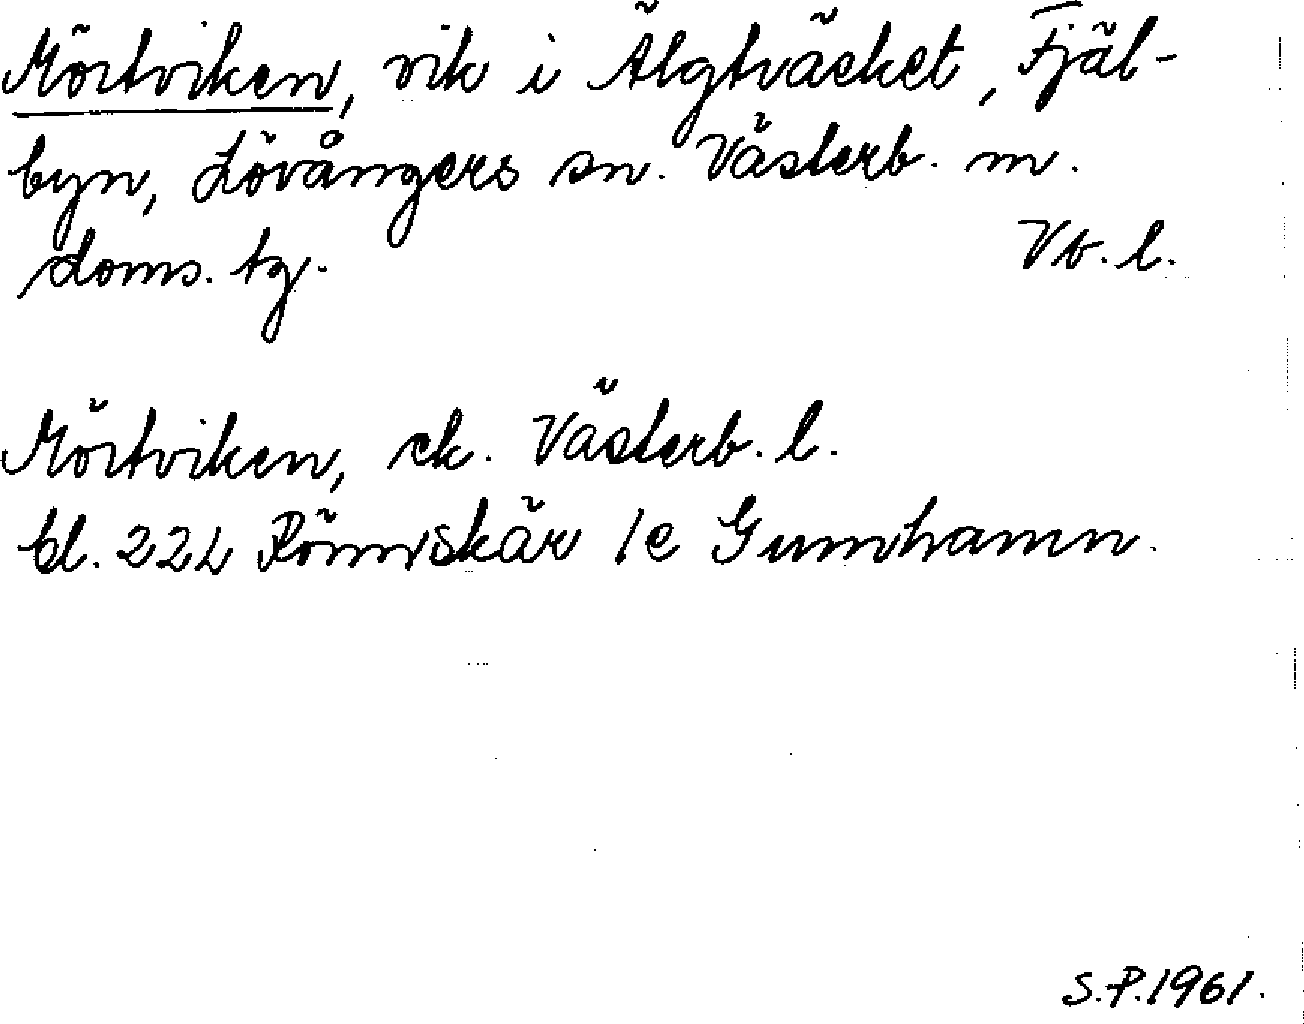 Mörtviken, vik i Älgträsket, Fjäl-
byn, Lövångers sn. Västerb. m.
doms. tg. Vb. l.
Mörtviken, ek. Västerb. l.
bl. 22L Rönnskär 1e Gumhamn.
S.P.1961.